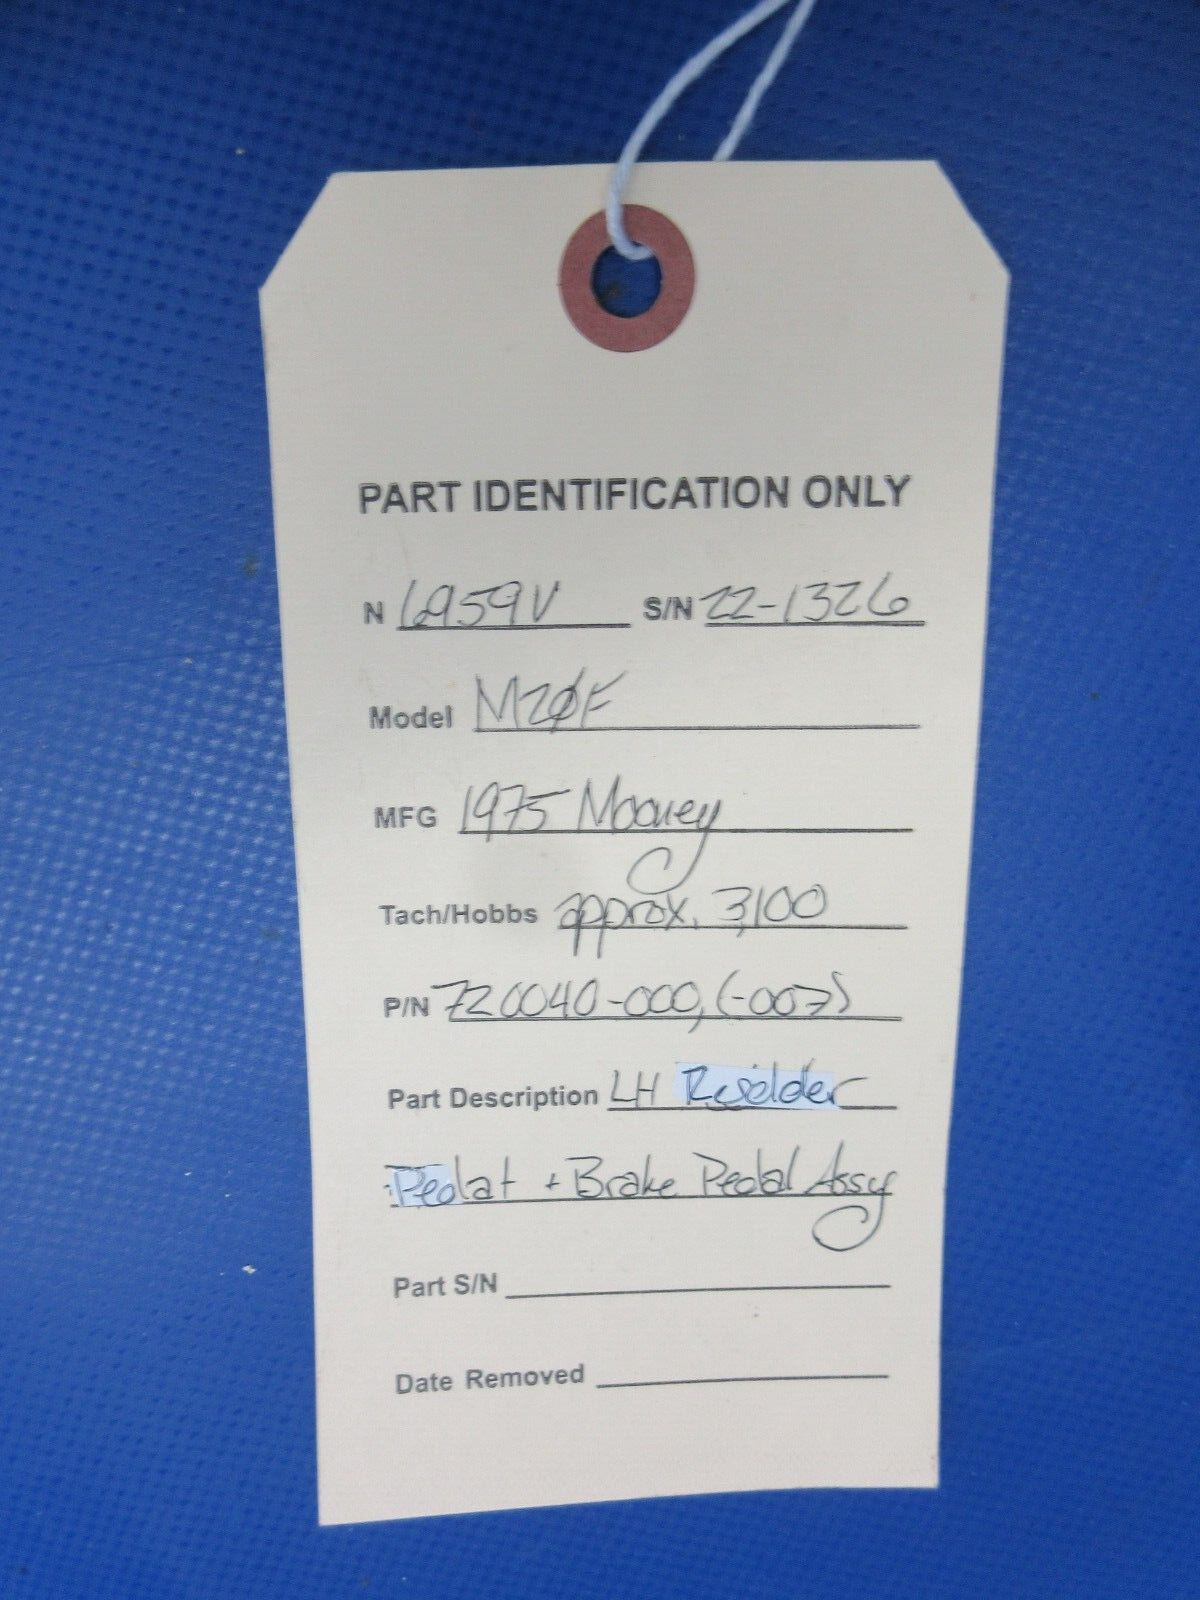 PART IDENTIFICATION ONLY
N 6959V S/N 22-1326
Model M2ØF
MFG 1975 Mooney
Tach/Hobbs approx. 3,100
P/N 720040-000, (-007)
Part Description LH Rudder
Pedal + Brake Pedal Assy
Part S/N
Date Removed